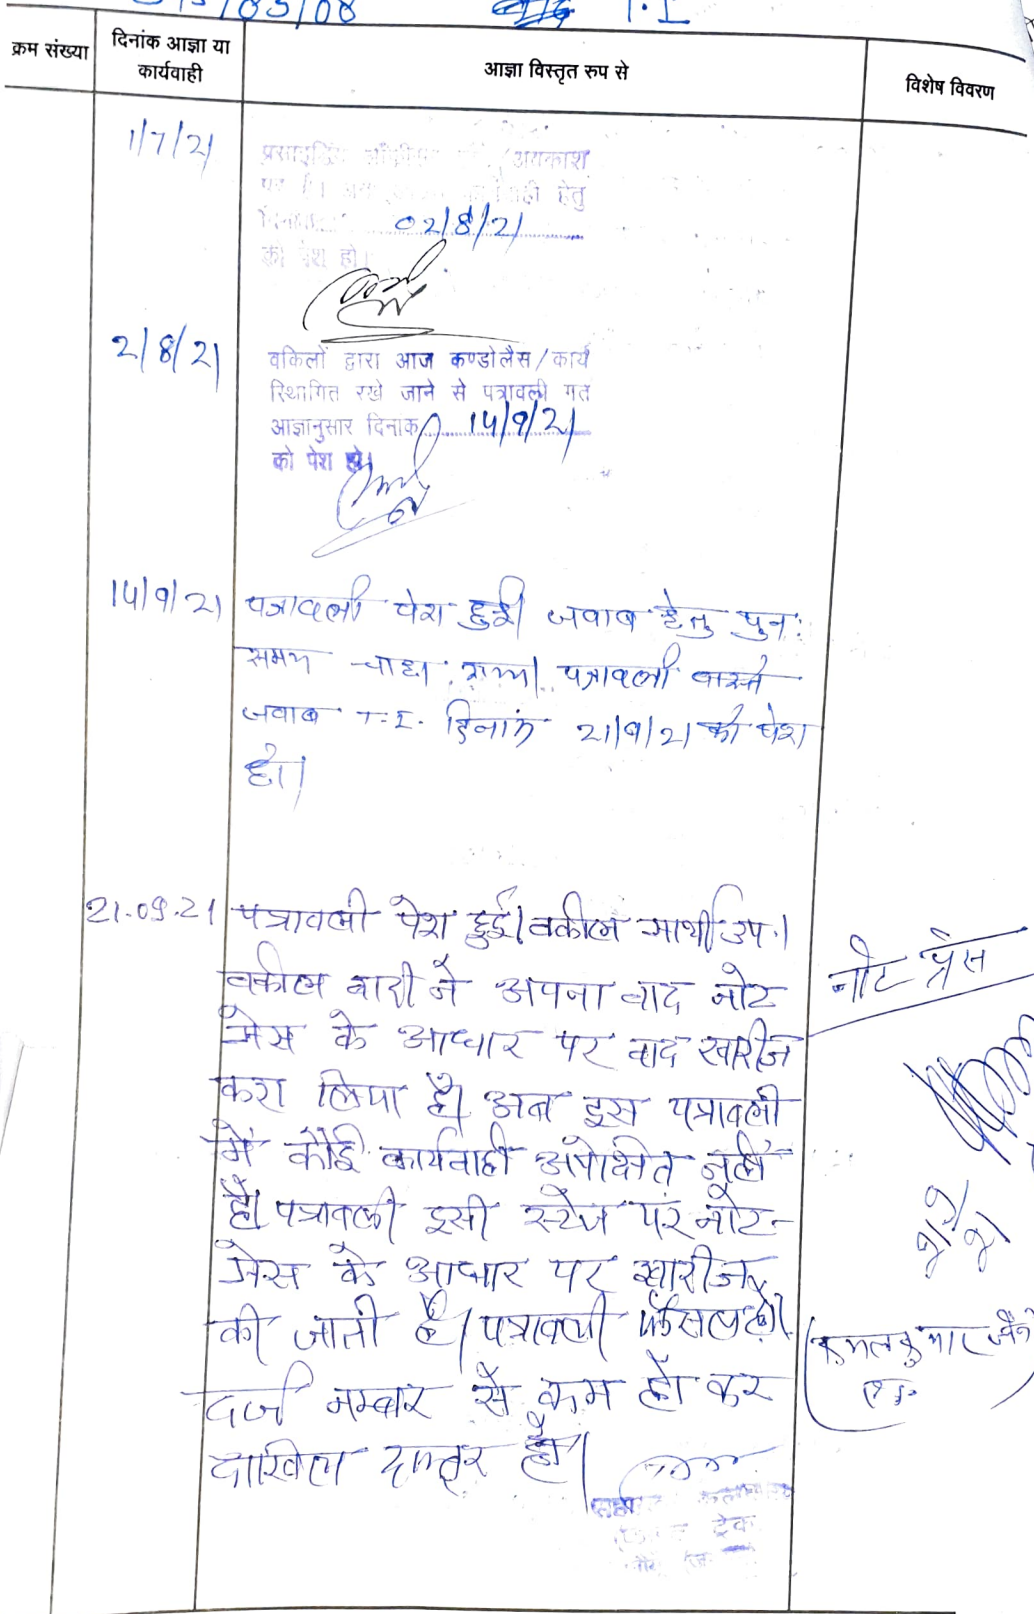 T.I
क्रम संख्या
दिनांक आज्ञा या
कार्यवाही
आज्ञा विस्तृत रुप से
विशेष विवरण
1/7/21
अवकाश
हेतु
02/8/21
को पेश हो।
2/8/21
वकिलों द्वारा आज कण्डोलैस/कार्य
स्थिागित रखे जाने से पत्रावली गत
आज्ञानुसार दिनांक 14/9/21
को पेश हो।
14/9/21
पत्रावली पेश हुई जवाब हेतु पुनः
समय चाहा गया। पत्रावली वास्ते
जवाब T.I. दिनांक 21/9/21 को पेश
हो।
21.09.21
पत्रावली पेश हुई। वकील प्रार्थी उप.।
वकील वादी ने अपना वाद नोट
प्रेस के आधार पर वाद खारीज
करा लिया है। अब इस पत्रावली
में कोई कार्यवाही अपेक्षित नहीं
है। पत्रावली इसी स्टेज पर नोट-
प्रेस के आधार पर खारीज
की जाती है। पत्रावली फैसल हो।
दर्ज नम्बर से कम हो कर
दाखिल दफ्तर हो।
नोट प्रेस
(कमल कुमार जैन)
ट्रेक